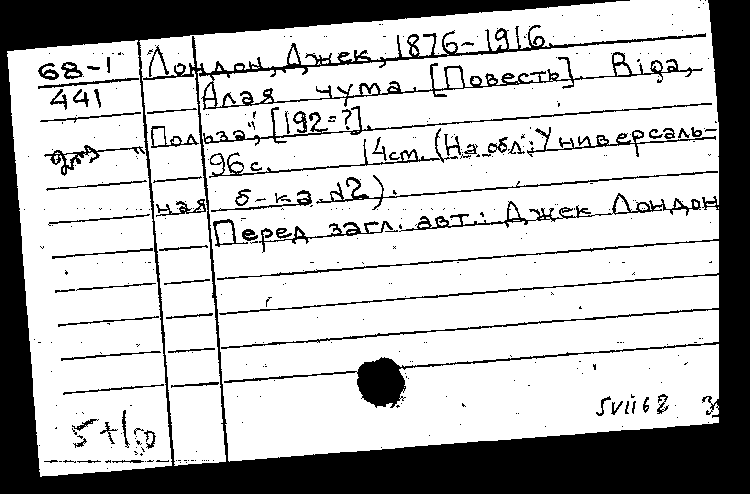 68-1 Лондон, Джек, 1876-1916.
441 Алая чума. [Повесть]. Riga,
"Польза", [192=?].
96 с. 14 cm. (На обл.: Универсаль-
ная б-ка №2).
Перед загл. авт.: Джек Лондон
5VII68